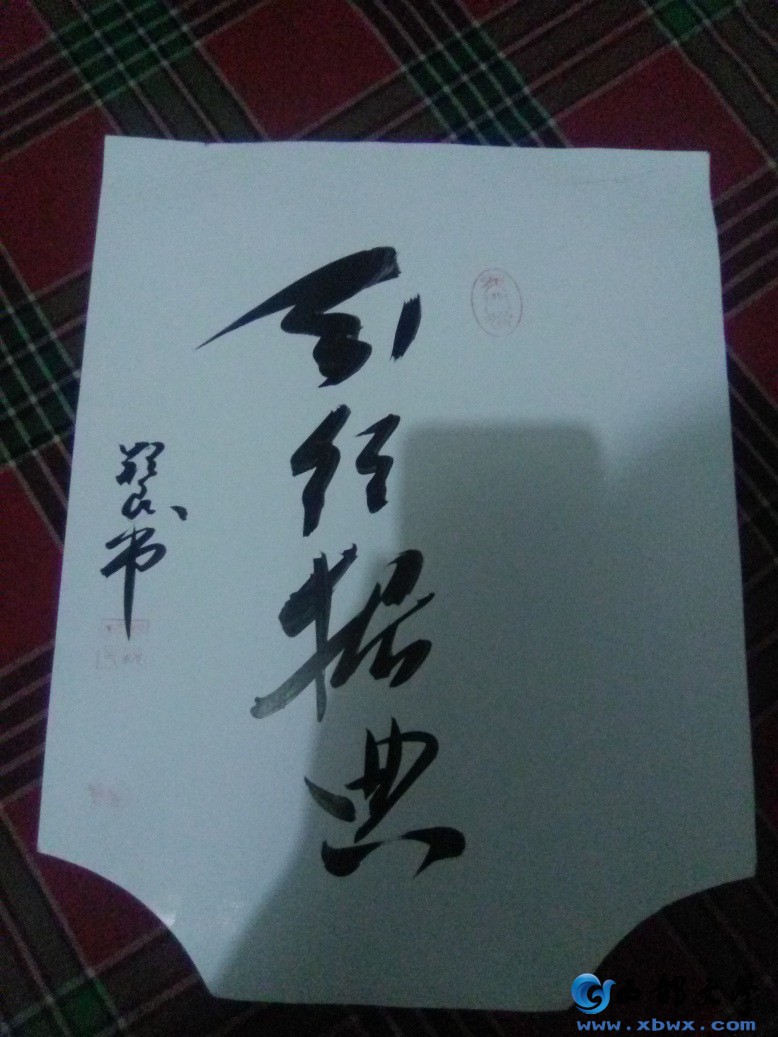 引经据典
良书
西部文学
www.xbwx.com